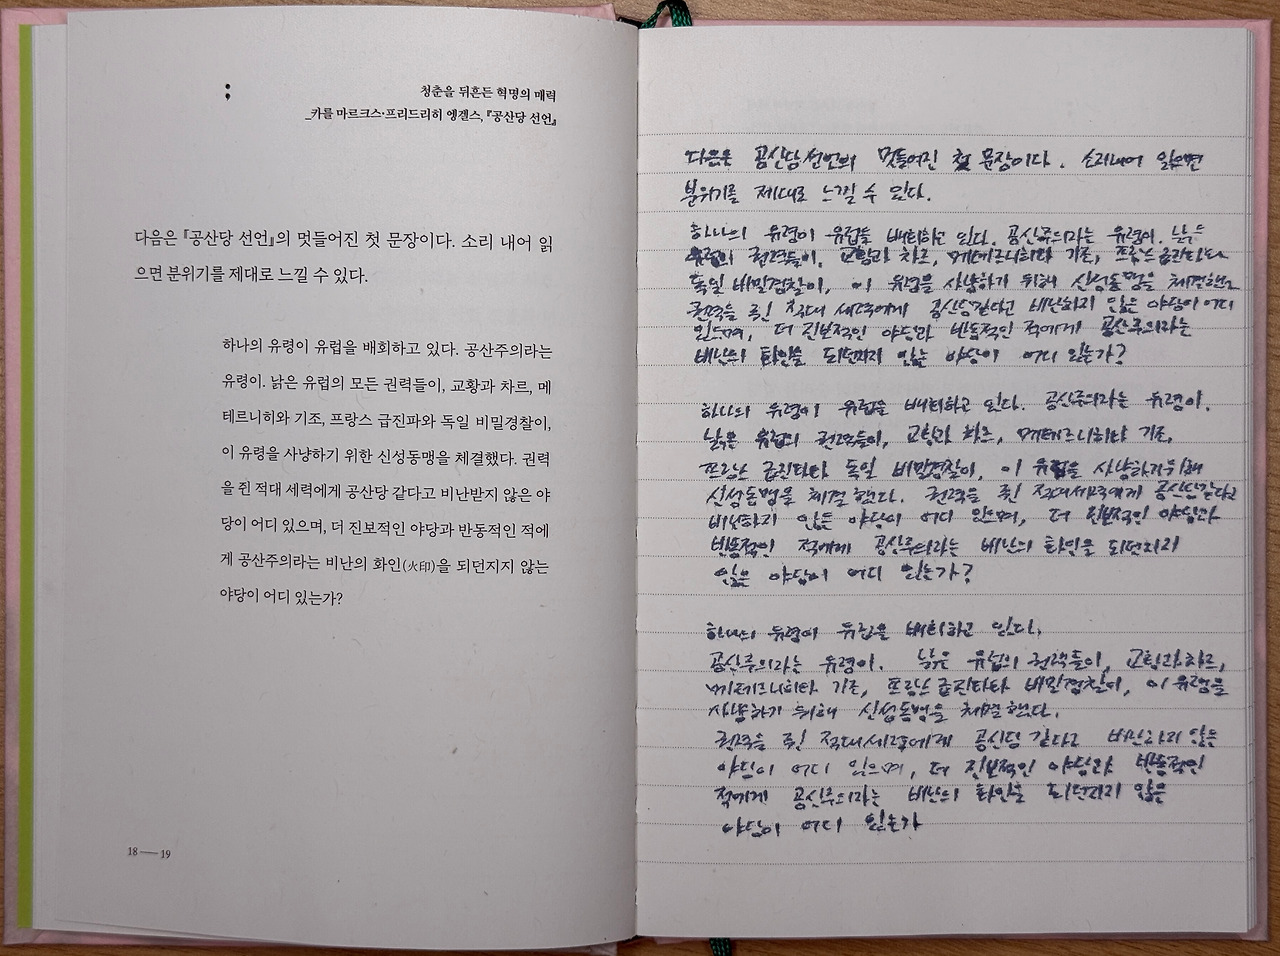 청춘을 뒤흔든 혁명의 매력
_카를 마르크스·프리드리히 엥겔스, 『공산당 선언』
다음은 『공산당 선언』의 멋들어진 첫 문장이다. 소리 내어 읽
으면 분위기를 제대로 느낄 수 있다.
하나의 유령이 유럽을 배회하고 있다. 공산주의라는
유령이. 낡은 유럽의 모든 권력들이, 교황과 차르, 메
테르니히와 기조, 프랑스 급진파와 독일 비밀경찰이,
이 유령을 사냥하기 위한 신성동맹을 체결했다. 권력
을 쥔 적대 세력에게 공산당 같다고 비난받지 않은 야
당이 어디 있으며, 더 진보적인 야당과 반동적인 적에
게 공산주의라는 비난의 화인(火印)을 되던지지 않는
야당이 어디 있는가?
18 — 19
다음은 공산당선언의 멋들어진 첫 문장이다. 소리내어 읽으면
분위기를 제대로 느낄 수 있다.
하나의 유령이 유럽을 배회하고 있다. 공산주의라는 유령이. 낡은
유럽의 권력들이, 교황과 차르, 메테르니히와 기조, 프랑스 급진파와
독일 비밀경찰이, 이 유령을 사냥하기 위해 신성동맹을 체결했다
권력을 쥔 적대 세력에게 공산당같다고 비난하지 않은 야당이 어디
있으며, 더 진보적인 야당과 반동적인 적에게 공산주의라는
비난의 화인을 되던지지 않는 야당이 어디 있는가?
하나의 유령이 유럽을 배회하고 있다. 공산주의라는 유령이.
낡은 유럽의 권력들이, 교황과 차르, 메테르니히와 기조,
프랑스 급진파와 독일 비밀경찰이, 이 유령을 사냥하기위해
신성동맹을 체결했다. 권력을 쥔 적대세력에게 공산당같다고
비난하지 않은 야당이 어디 있으며, 더 진보적인 야당과
반동적인 적에게 공산주의라는 비난의 화인을 되던지지
않은 야당이 어디 있는가?
하나의 유령이 유럽을 배회하고 있다.
공산주의라는 유령이. 낡은 유럽의 권력들이, 교황과 차르,
메테르니히와 기조, 프랑스 급진파와 비밀경찰이, 이 유령을
사냥하기 위해 신성동맹을 체결했다.
권력을 쥔 적대세력에게 공산당 같다고 비난하지 않은
야당이 어디 있으며, 더 진보적인 야당과 반동적인
적에게 공산주의라는 비난의 화인을 되던지지 않은
야당이 어디 있는가